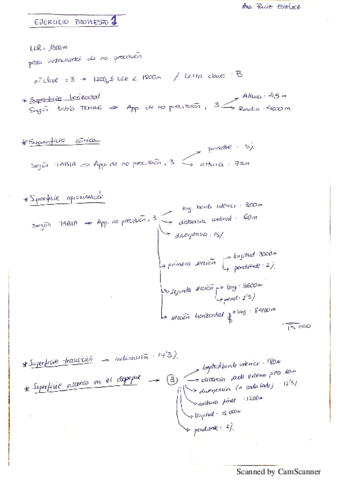 EJERCICIO PROPUESTO 1
LCR: 1500m
pista instrumental de no precisión
nº clave = 3 → 1200 ≤ LCR < 1800m / Letra clave: B
* Superficie horizontal
Según tabla → App. de no precisión, 3
Altura: 45m
Radio: 4000m
* Superficie cónica
Según TABLA → App. de no precisión, 3
pendiente: 5%
altura: 75m
* Superficie aproximación
Según TABLA → App. de no precisión, 3
long. borde interior: 300m
distancia umbral: 60m
divergencia: 15%
primera sección
longitud: 3000m
pendiente: 2%
segunda sección
long: 3600m
pend: 2'5%
sección horizontal
long: 8400m
15.000
* Superficie transición → inclinación: 14'3%
* Superficie ascenso en el despegue → 3
longitud borde interior: 180m
distancia desde extremo pista 60m
divergencia (a cada lado) 12'5%
anchura final: 1200m
longitud: 15.000m
pendiente: 2%
Scanned by CamScanner